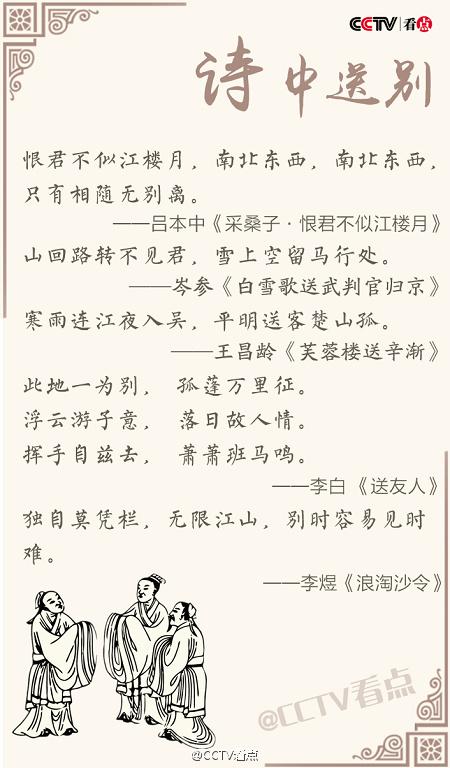 CCTV 看点
诗中送别
恨君不似江楼月，南北东西，南北东西，
只有相随无别离。
——吕本中《采桑子·恨君不似江楼月》
山回路转不见君，雪上空留马行处。
——岑参《白雪歌送武判官归京》
寒雨连江夜入吴，平明送客楚山孤。
——王昌龄《芙蓉楼送辛渐》
此地一为别， 孤蓬万里征。
浮云游子意， 落日故人情。
挥手自兹去， 萧萧班马鸣。
——李白 《送友人》
独自莫凭栏，无限江山，别时容易见时
难。
——李煜《浪淘沙令》
@CCTV看点
@CCTV看点